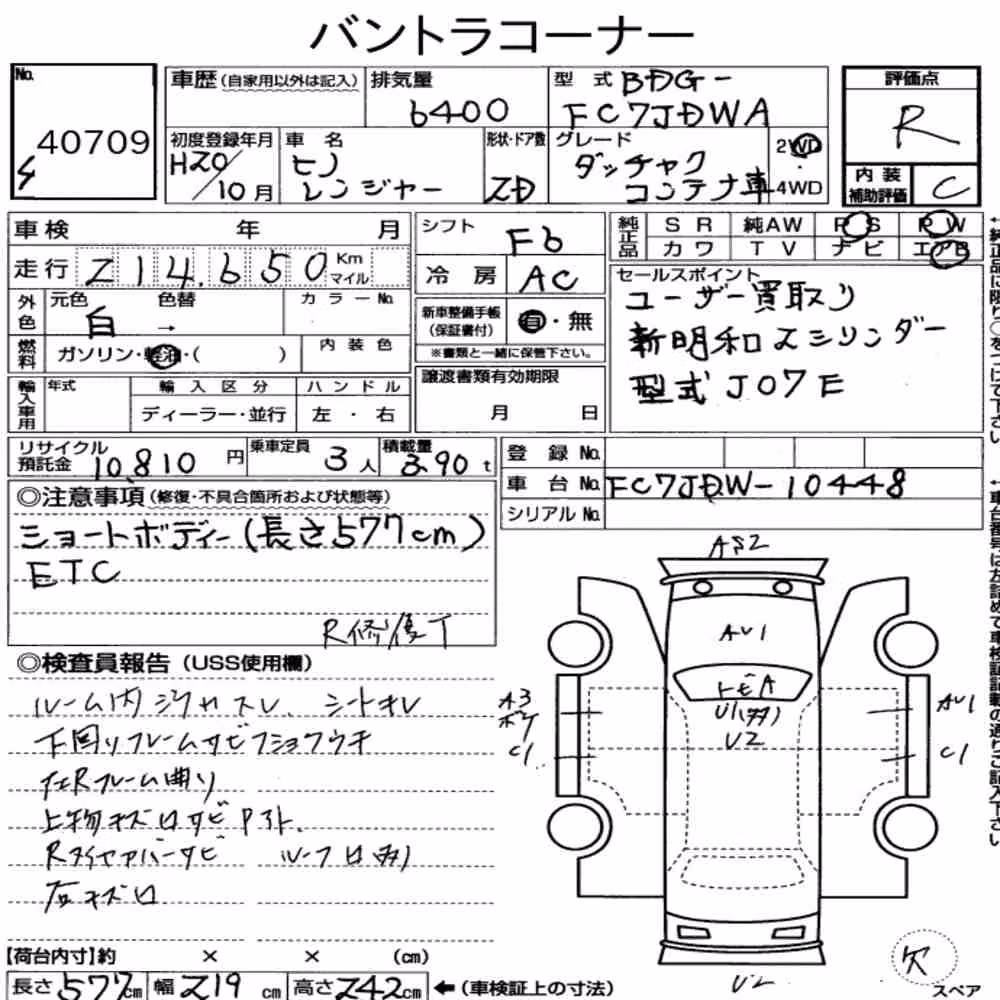 バントラコーナー
No. 40709
4
車歴(自家用以外は記入)
排気量 6400
型式 BDG-
FC7JDWA
評価点 R
内装補助評価 C
初度登録年月 H20/10月
車名 ヒノ
レンジャー
形状・ドア数 2D
グレード ダッチャク
コンテナ車
2WD
4WD
車検 年 月
走行 214,650 Km マイル
外色 元色 白 色替 → カラーNo.
燃料 ガソリン・軽油・( ) 内装色
輸入車用 年式 輸入区分 ハンドル
ディーラー・並行 左・右
シフト F6
冷房 AC
新車整備手帳(保証書付) 有・無
※書類と一緒に保管下さい。
譲渡書類有効期限
月 日
純正品 SR 純AW PS PW
カワ TV ナビ エアB
セールスポイント
ユーザー買取り
新明和 2シリンダー
型式 J07E
リサイクル預託金 10,810円
乗車定員 3人
積載量 3.90t
登録No.
車台No. FC7JDW-10448
シリアルNo.
◎注意事項(修復・不具合箇所および状態等)
ショートボディー(長さ577cm)
ETC
R修復丁
◎検査員報告(USS使用欄)
シートキレ
下回りフレームサビフショクウキ
左Rフレーム曲り
上物キズ凹サビ
Rタイヤアバーサビ
ルーフ凹
右キズ凹
AS2
AU1
U2
A3
ボケ
C1
AU1
C1
U2
欠
スペア
【荷台内寸】約 × × (cm)
長さ 577cm 幅 219cm 高さ 242cm ←(車検証上の寸法)